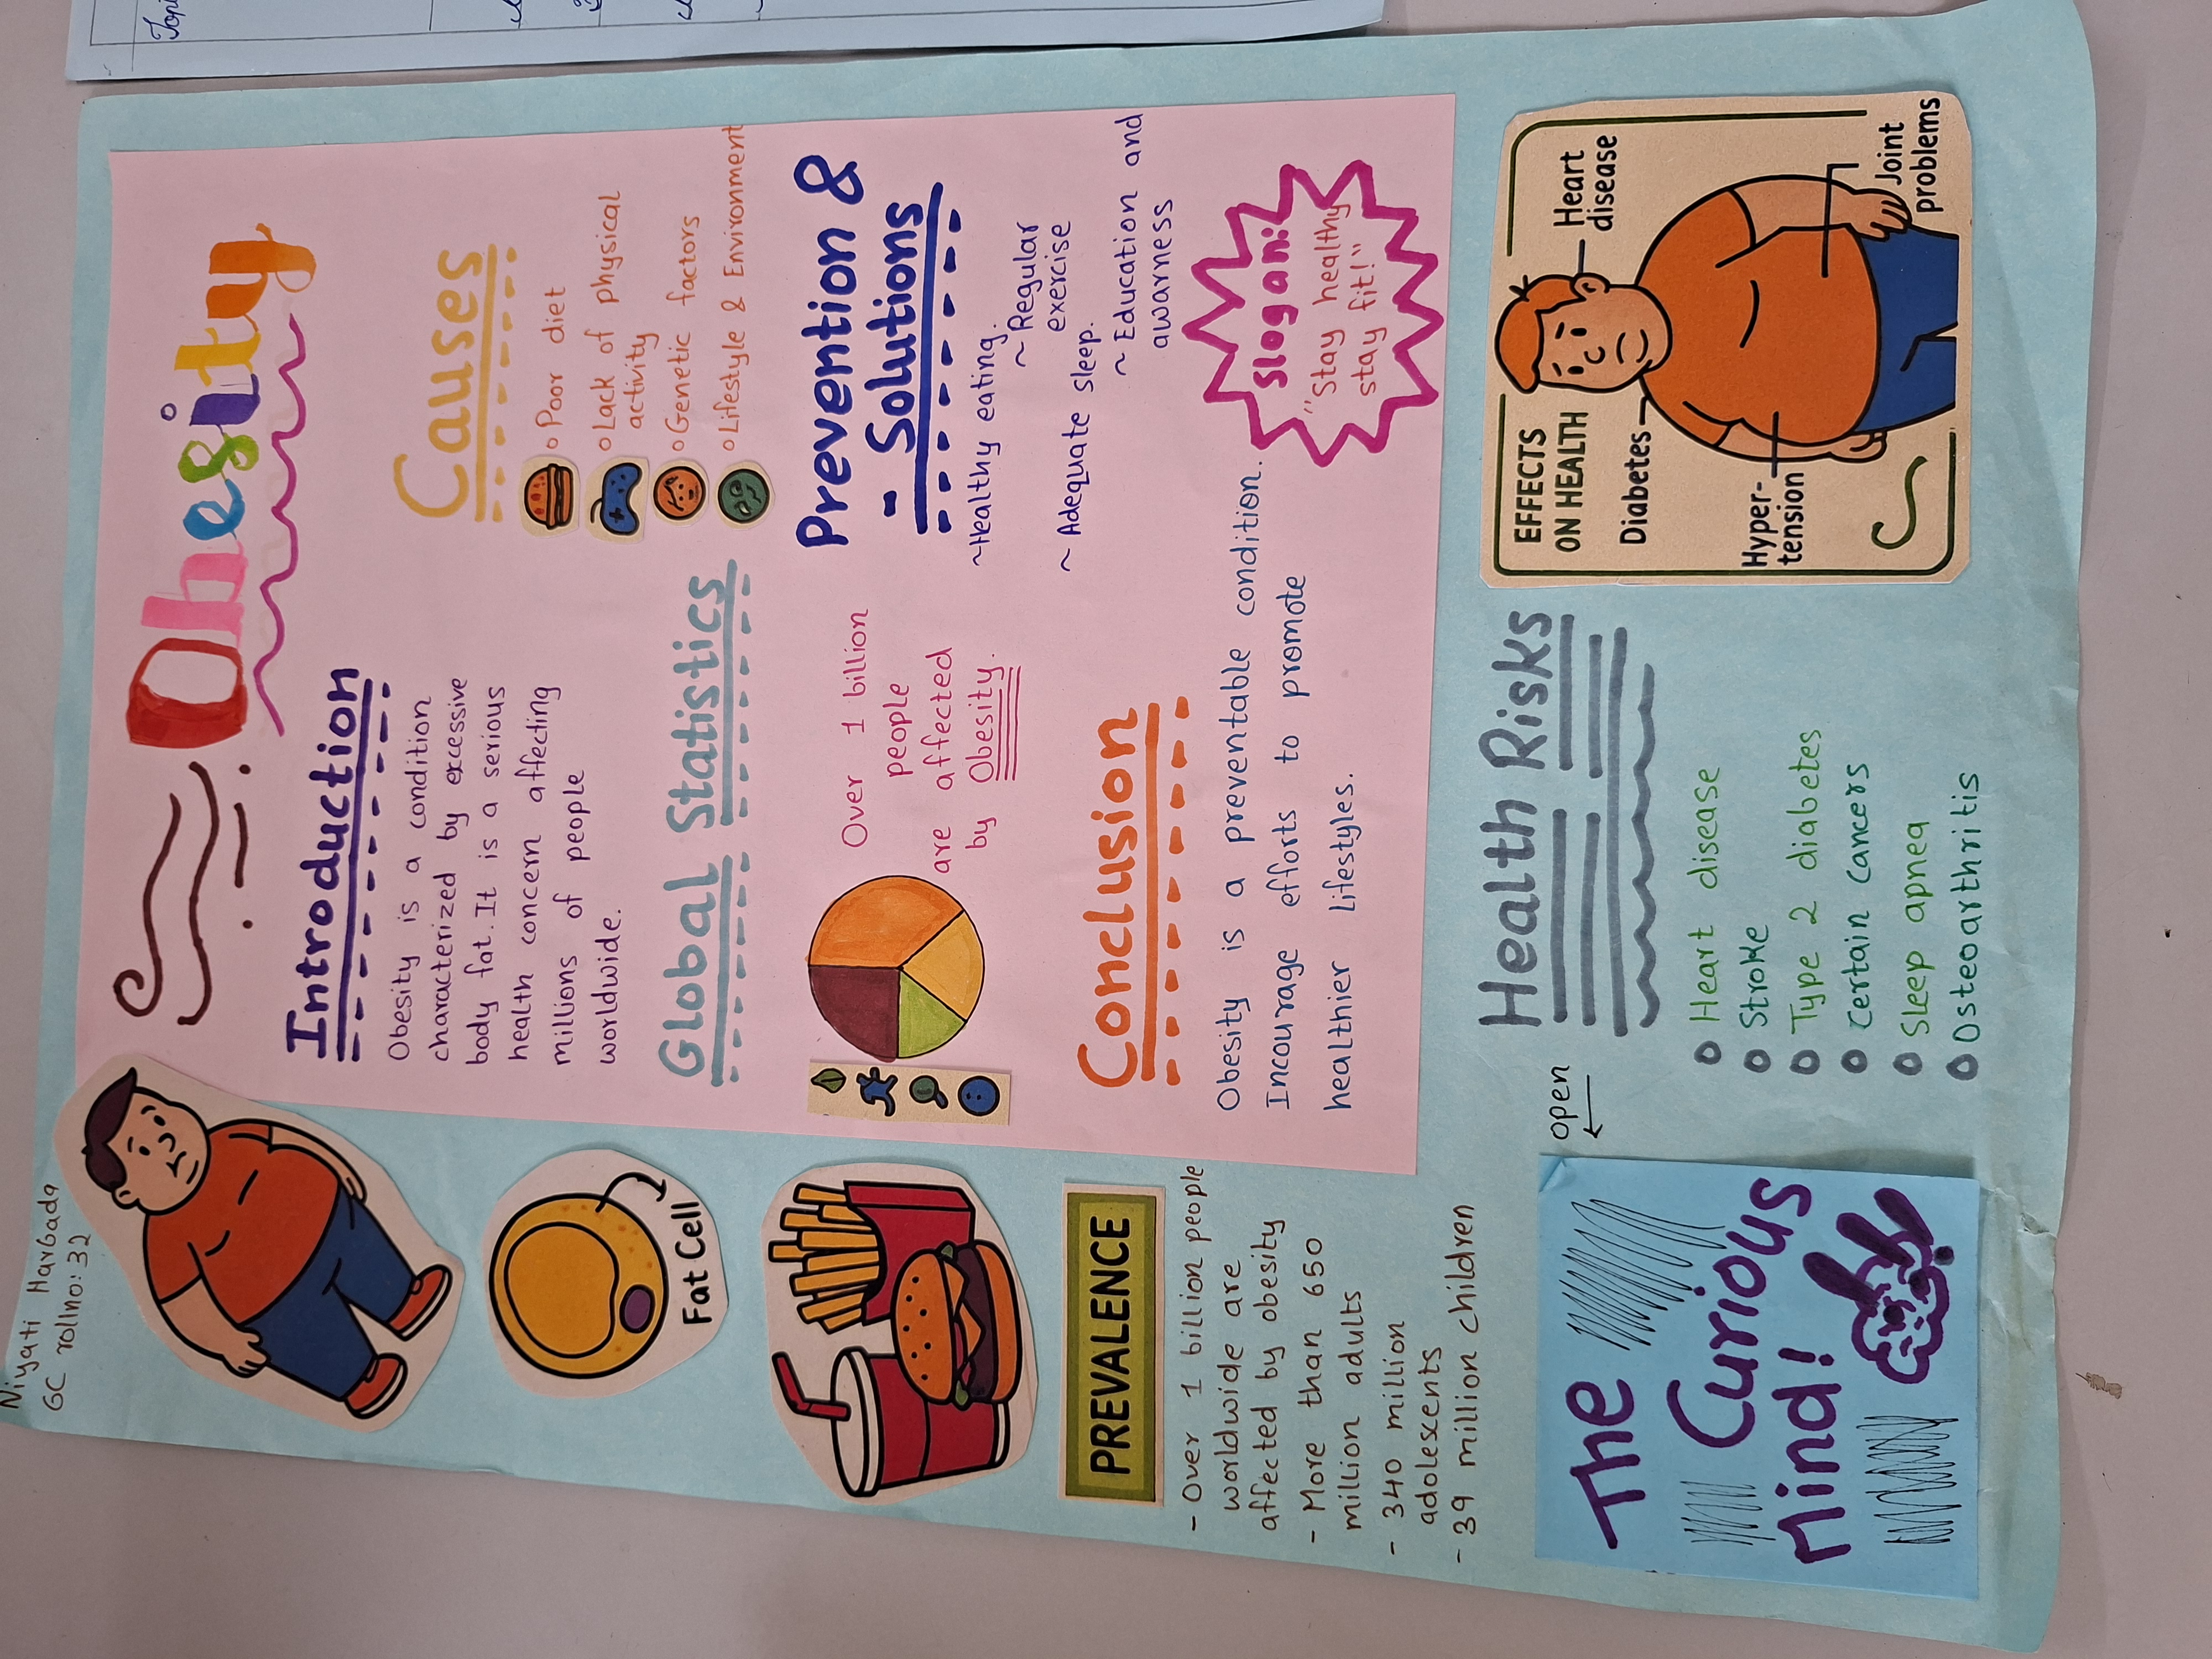 Niyati Harbada
6C rollno: 32
Obesity
Introduction
Obesity is a condition
characterized by excessive
body fat. It is a serious
health concern affecting
millions of people
worldwide.
Causes
Poor diet
Lack of physical
activity
Genetic factors
Lifestyle & Environment
Fat Cell
Global Statistics
Over 1 billion
people
are affected
by Obesity.
Prevention &
- Solutions
~Healthy eating.
~ Regular
exercise
~ Adequate sleep.
~ Education and
awarness
Slogan:
"Stay healthy
stay fit!"
Conclusion
Obesity is a preventable condition.
Incourage efforts to promote
healthier lifestyles.
PREVALENCE
- Over 1 billion people
worldwide are
affected by obesity
- More than 650
million adults
- 340 million
adolescents
- 39 million children
The
Curious
Mind!
open
Health Risks
Heart disease
Stroke
Type 2 diabetes
certain cancers
Sleep apnea
Osteoarthritis
EFFECTS
ON HEALTH
Heart
disease
Diabetes
Hyper-
tension
Joint
problems